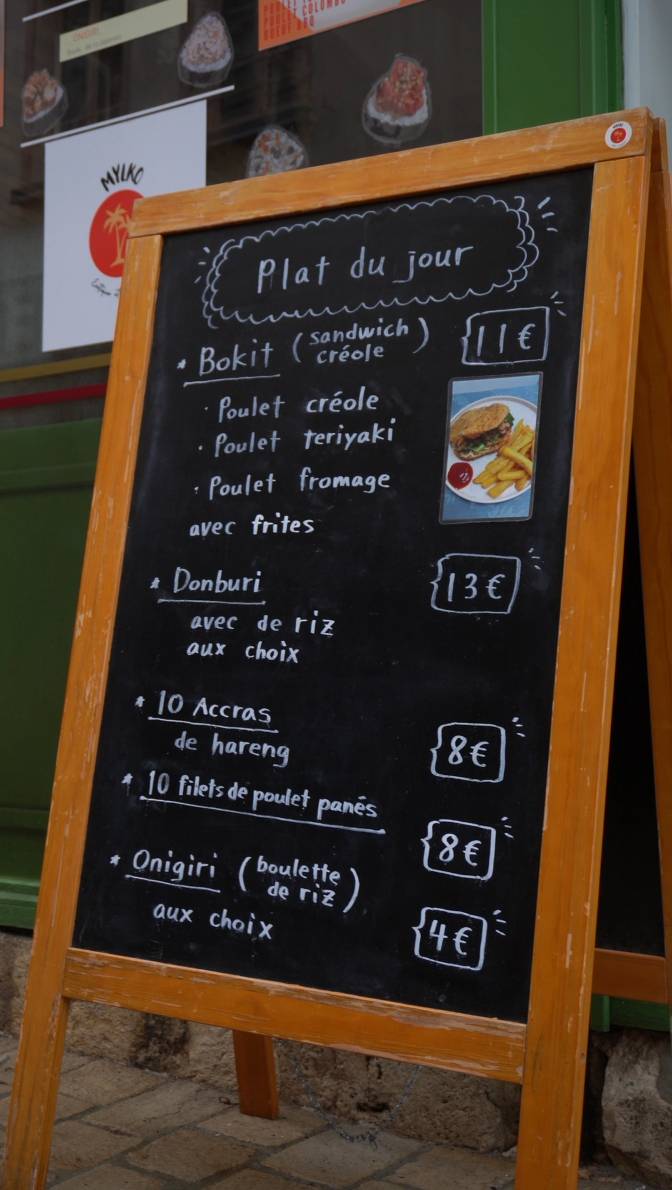 ONIGIRI
POULET COLOMBO
BOEUF BBQ
MYLKO
MYLKO
Plat du jour
* Bokit (sandwich créole) 11€
· Poulet créole
· Poulet teriyaki
· Poulet fromage
avec frites
* Donburi 13€
avec de riz
aux choix
* 10 Accras
de hareng 8€
* 10 filets de poulet panés 8€
* Onigiri (boulette de riz)
aux choix 4€